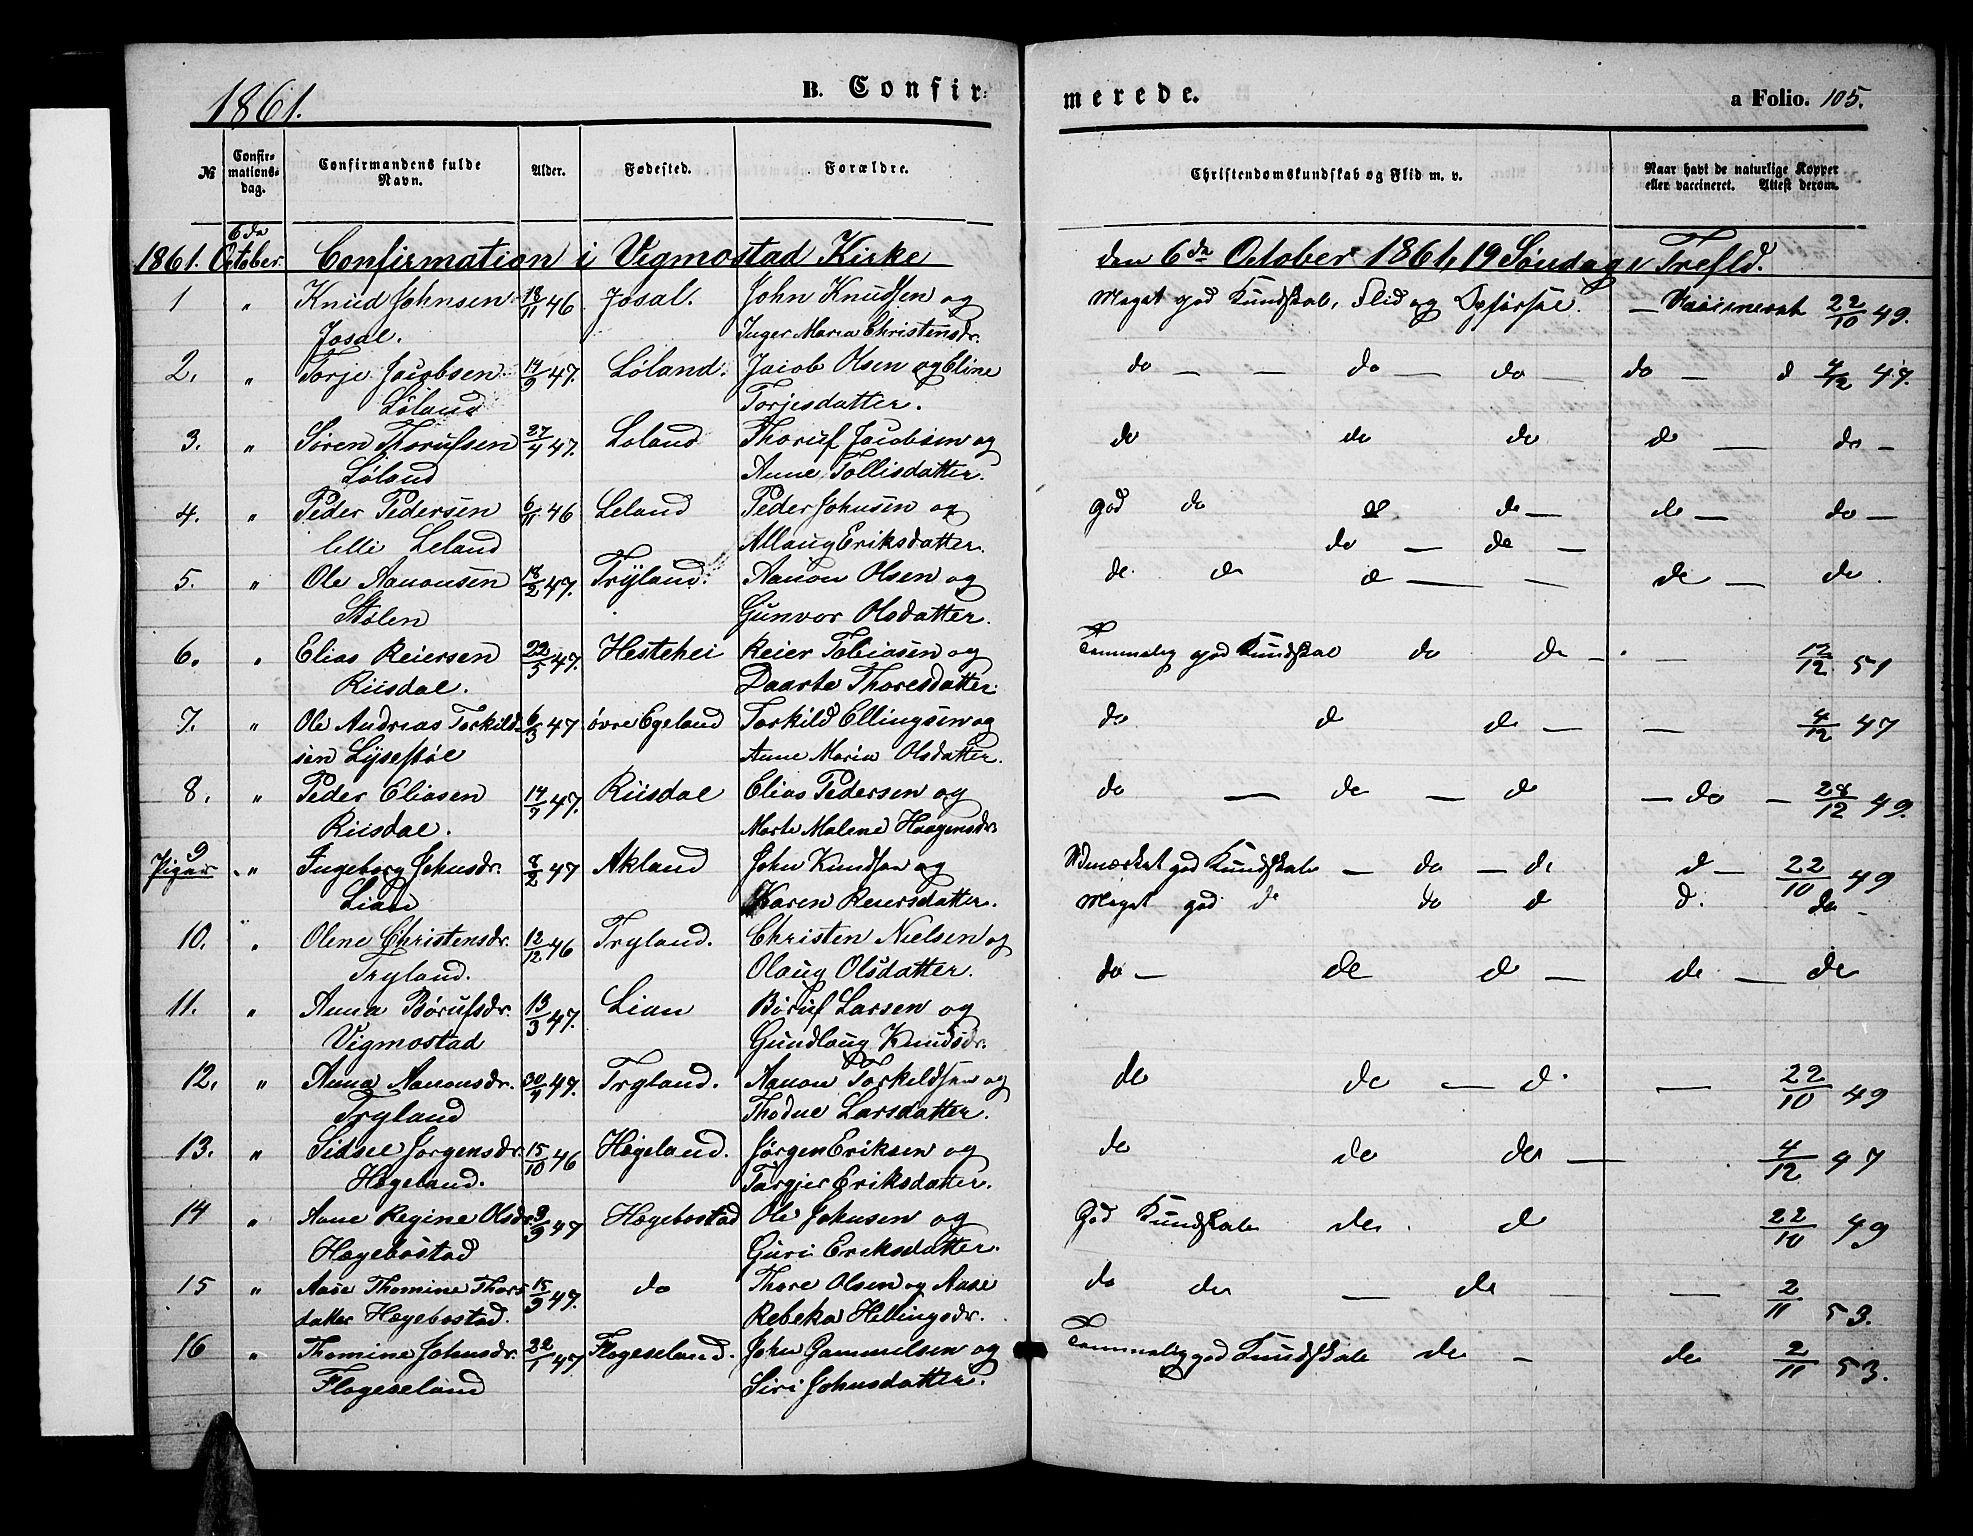 1861.
B. Confir-
merede.
a Folio. 105.
№
Confir-
mations-
dag.
Confirmandens fulde
Navn.
Alder.
Fødested.
Forældre.
Christendomskundskab og Flid m. v.
Naar havt de naturlige Kopper
eller vaccineret. Attest derom.
6de
1861. October. Confirmation i Vigmostad Kirke den 6de October 1861, 19 Søndag e Trefld.
1 " Knud Johnsen 18/11 46 Josal. John Knudsen og Meget god Kundskab, Flid og Opførsel. — Vaccineret 22/10 49.
Josal. Inger Maria Christensdr.
2. " Torje Jacobsen 14/9 47. Løland. Jacob Olsen og Eline do — — do — do — do — d 4/12 47.
Løland Torjesdatter.
3. " Søren Thorufsen 27/4 47. Løland Thoruf Jacobsen og do do do do — do —
Løland Anne Tollisdatter.
4. " Peder Pedersen 6/11 46 Leland Peder Johnsen og god do do — do — do —
lille Leland Allaug Eriksdatter. do — do —
5. " Ole Aanonsen 18/2 47. Tryland. Aanon Olsen og do do d — — do — do.
Stølen Gunvor Olsdatter.
6. " Elias Reiersen 22/5 47. Hestehei Reier Tobiasen og Temmelig god Kundskab do do — — 12/12 51
Riisdal. Daarte Thoresdatter.
7. " Ole Andreas Torkild- 6/5 47 øvre Egeland Torkild Ellingsen og do d do — — 4/12 47
sen Lysestøl Anne Maria Olsdatter.
8. " Peder Eliasen 14/7 47. Riisdal Elias Pedersen og do — do — d — do — 28/12 49.
Riisdal. Marte Malene Haagensdr.
9
Piger " Ingeborg Johnsdr. 8/2 47 Akland John Knudsen og Udmærket god Kundskab — do — d d — 22/10 49
Lian Karen Reiersdatter. Meget god do do d d. do —
10. " Olene Christensdr. 12/12 46 Tryland. Christen Nielsen og
Tryland. Olaug Olsdatter. do — do d — do — do
11. " Anna Børufsdr. 13/3 47. Lian Børuf Larsen og
Vigmostad Gundlaug Knudsdr.
12. " Anna Aanonsdr. 30/4 47. Tryland. Aanon Torkildsen og do do — d. — 22/10 49
Tryland Thodne Larsdatter.
13. " Sidsel Jørgensdr. 15/10 46 Hægeland. Jørgen Eriksen og do do do — 4/12 47
Hægeland. Targjer Eriksdatter.
14 " Anne Regine Olsdr. 9/9 47 Hægebostad Ole Johnsen og God Kundskab do. d 22/10 49
Hægebostad Guri Eriksdatter.
15 " Aase Thomine Thors 15/9 47. do Thore Olsen og Aase do do — do — — 2/11 53.
datter Hægebostad. Rebeka Hellingsdr.
16 " Thomine Johnsdr. 22/1 47. Flogeseland. John Gammelsen og Temmelig god Kundskab do — do 2/11 53.
Flogeseland Siri Johnsdatter.